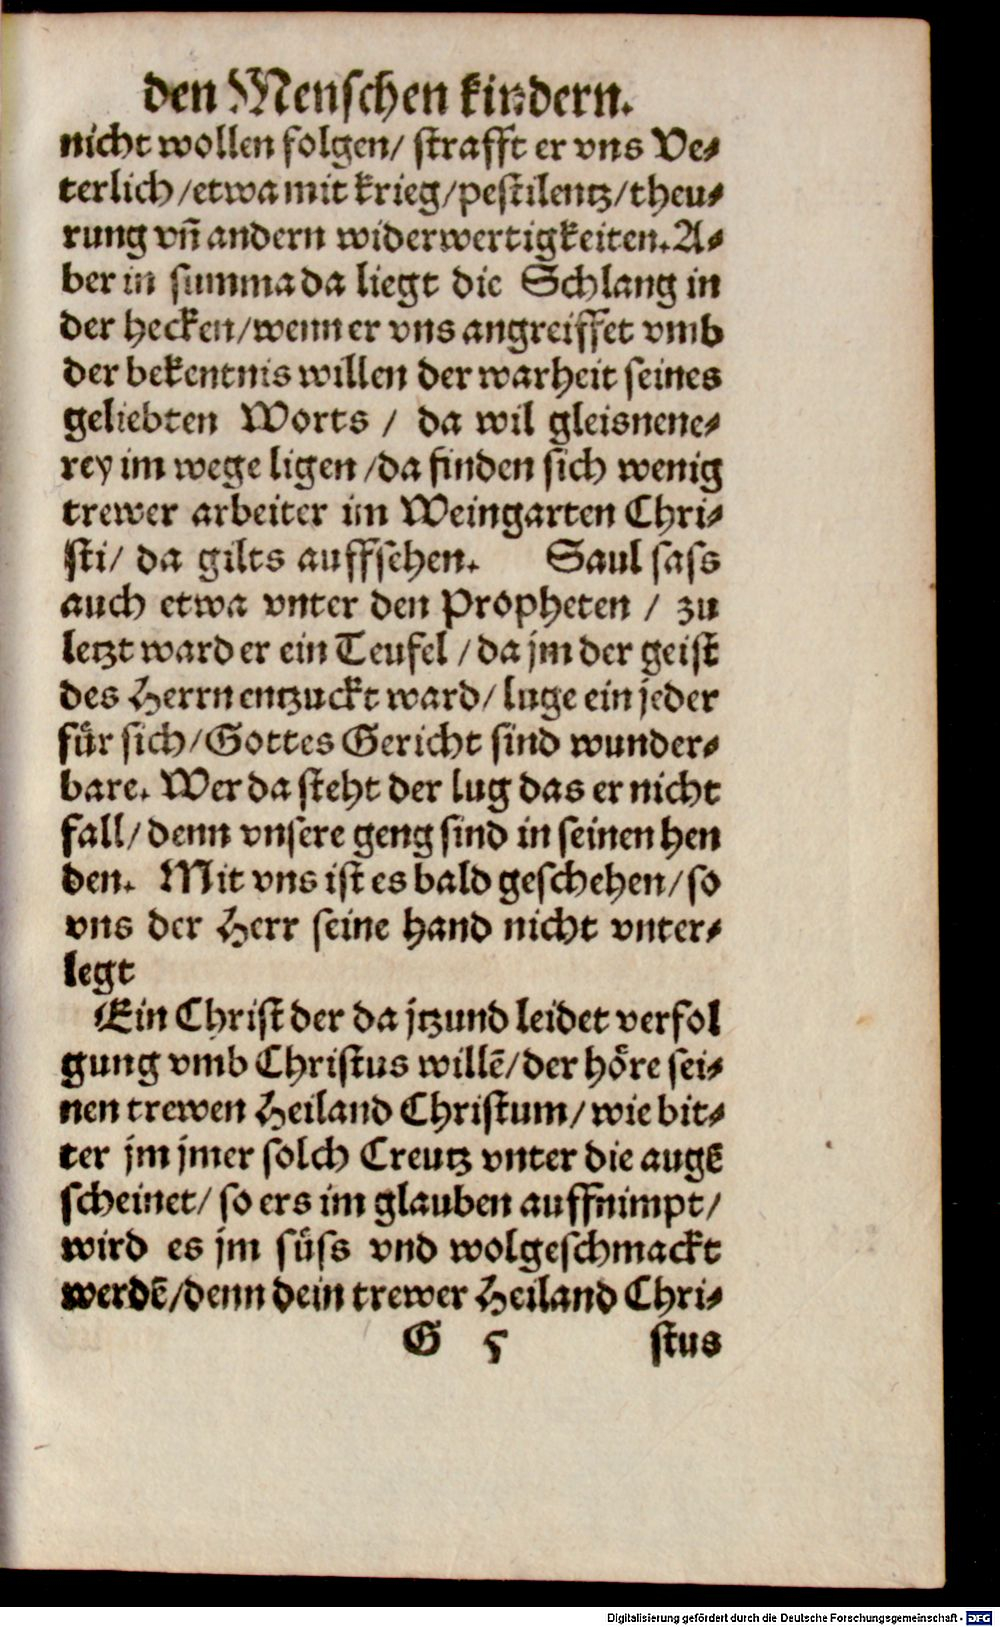 den Menschen kindern.
nicht wollen folgen/ strafft er vns Ve-
terlich/etwa mit krieg/pestilentz/theu-
rung vñ andern widerwertigkeiten. A-
ber in summa da liegt die Schlang in
der hecken/wenn er vns angreiffet vmb
der bekentnis willen der warheit seines
geliebten Worts / da wil gleisnene-
rey im wege ligen /da finden sich wenig
trewer arbeiter im Weingarten Chri-
sti/ da gilts auffsehen. Saul sass
auch etwa vnter den Propheten / zu
letzt ward er ein Teufel /da jm der geist
des Herrn entzuckt ward/ luge ein jeder
für sich/Gottes Gericht sind wunder-
bare. Wer da steht der lug das er nicht
fall/denn vnsere geng sind in seinen hen
den. Mit vns ist es bald geschehen/so
vns der Herr seine hand nicht vnter-
legt
Ein Christ der da jtzund leidet verfol
gung vmb Christus willē/der höre sei-
nen trewen Heiland Christum/wie bit-
ter jm jmer solch Creutz vnter die augē
scheinet/ so ers im glauben auffnimpt/
wird es jm süss vnd wolgeschmackt
werdē/denn dein trewer Heiland Chri-
G 5 stus
Digitalisierung gefördert durch die Deutsche Forschungsgemeinschaft - DFG